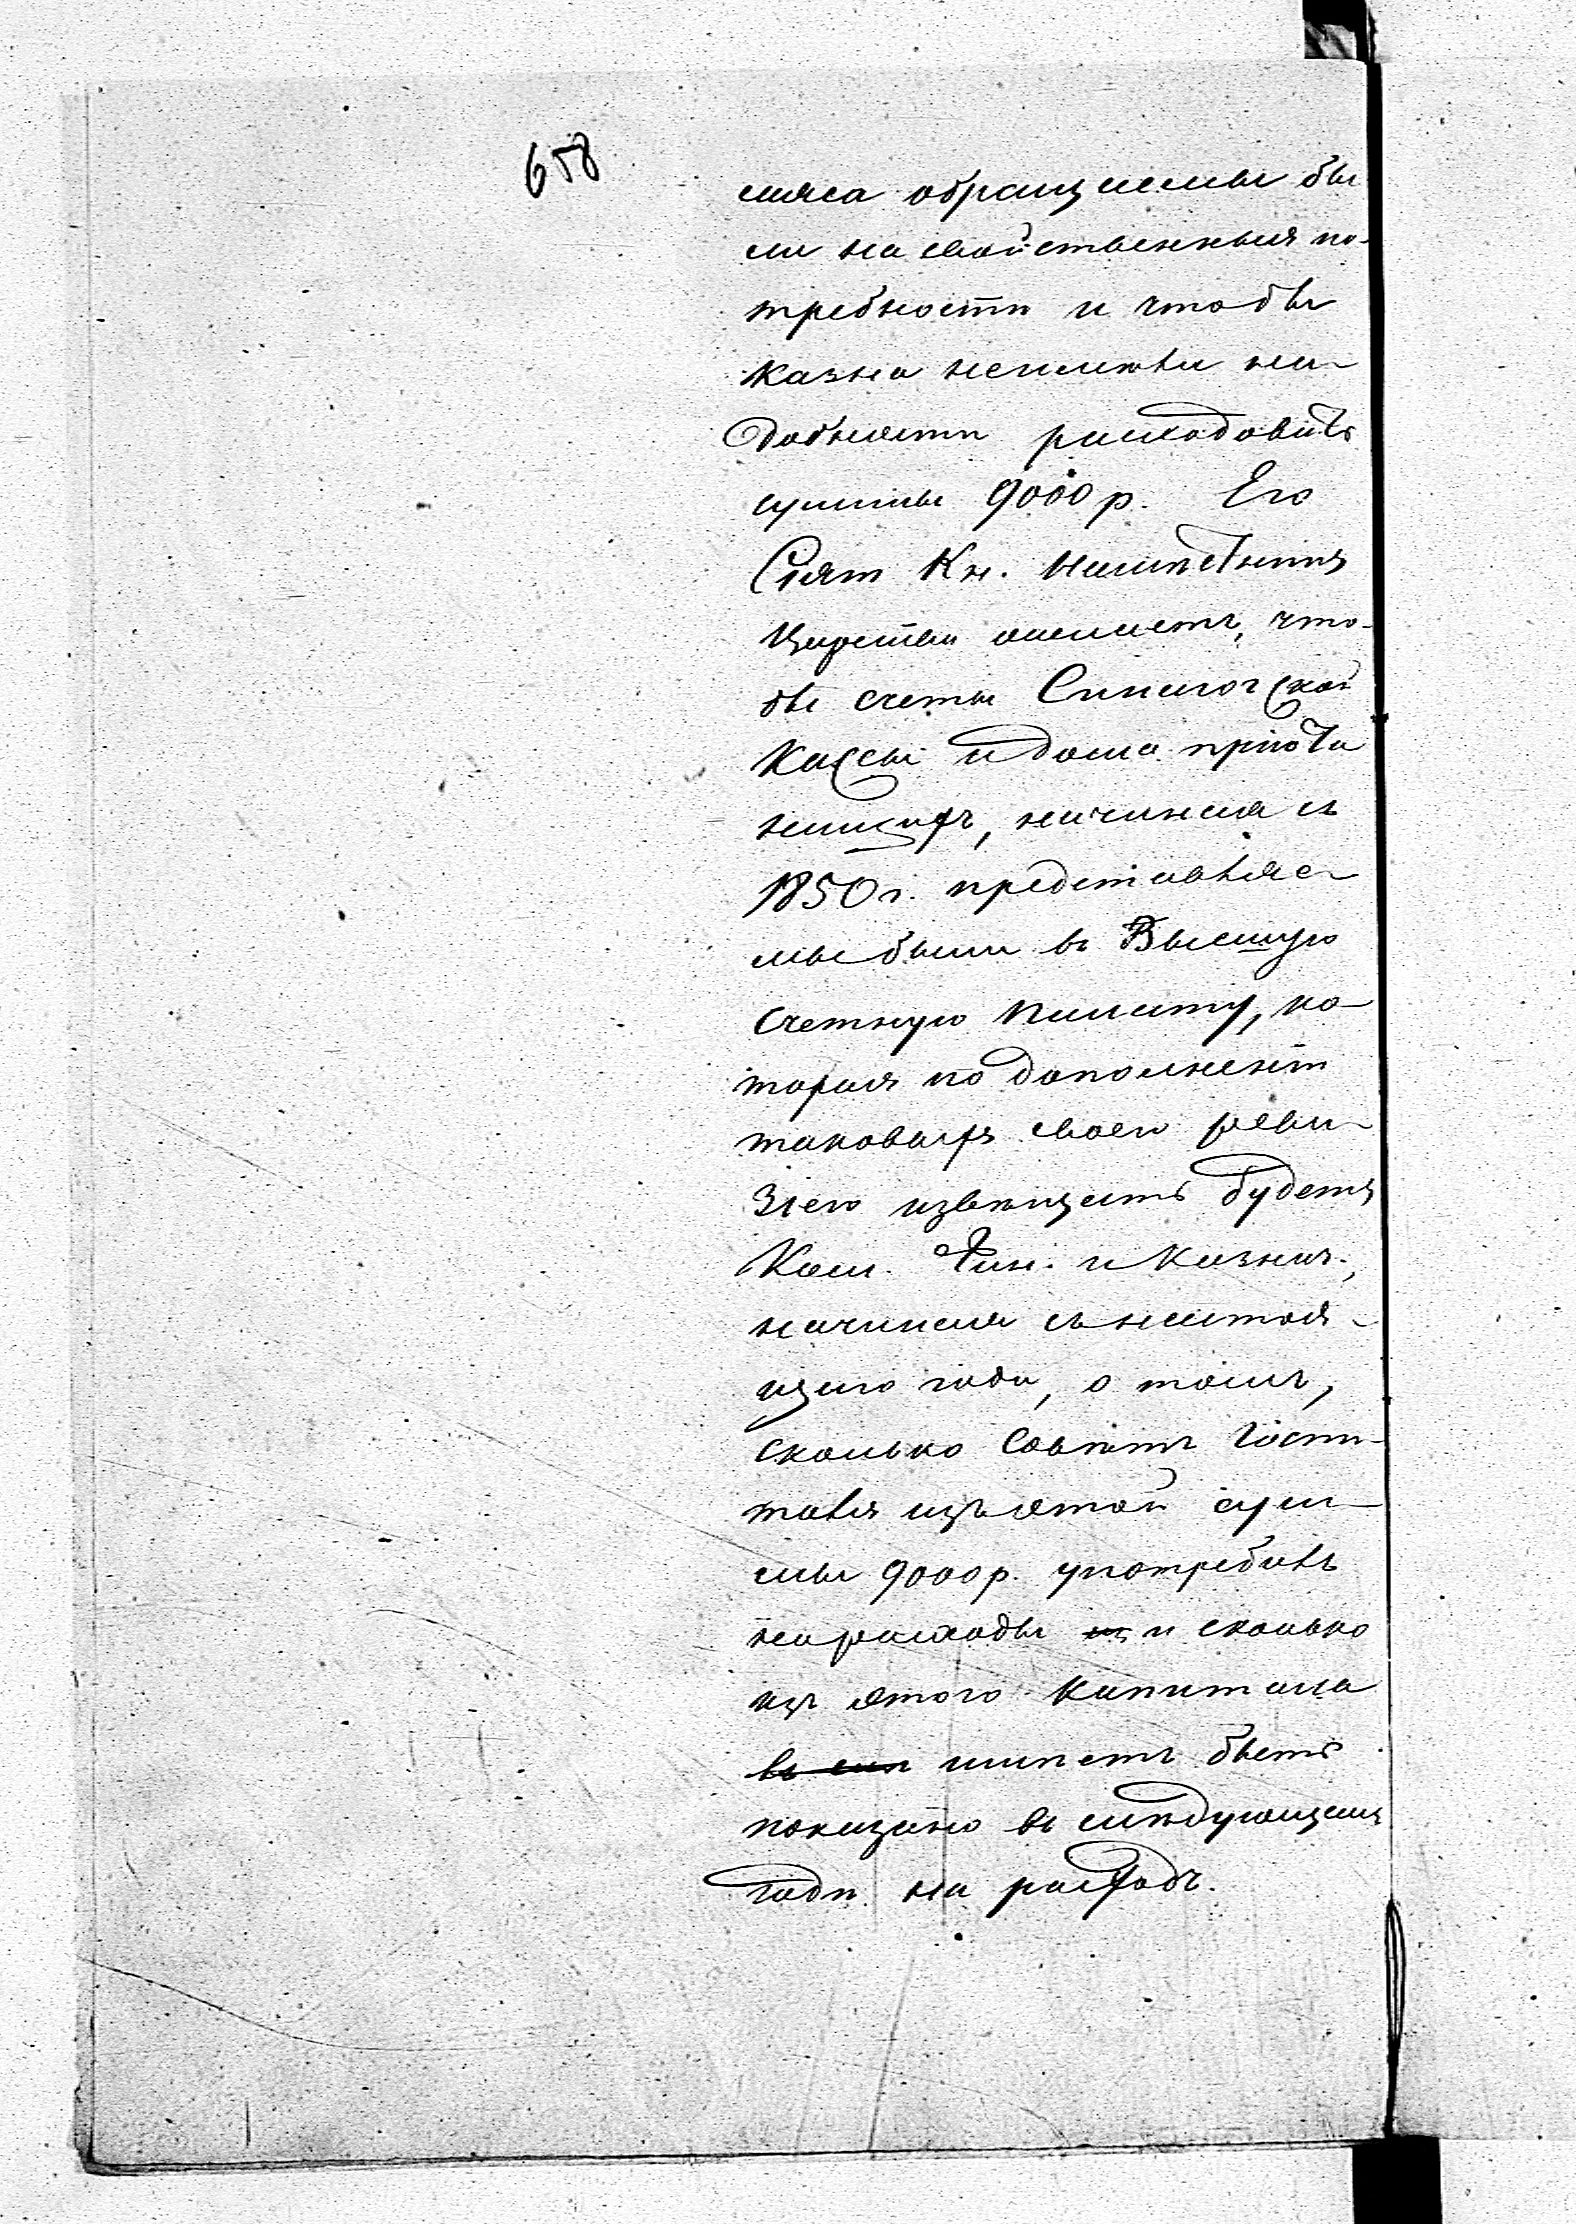 658
мяса обращаемы бы
ли на свойственныя по-
требности и чтобы
казна не имѣла на-
добности расходовать
суммы 9000 р. Его
Сіят Кн. Намѣстникъ
Царства желаетъ, что-
бы счеты Синагогской
Кассы и дома пріюта
нищихъ, начиная съ
1850 г. представляе-
мы были въ Высшую
Счетную Палату, ко-
торая по дополненіи
таковыхъ своею реви-
зіею извѣщать будетъ
Ком. Фин. и Казнач.,
начиная съ настоя-
щаго года, о томъ,
сколько Совѣтъ Госпи-
таля изъ этой сум-
мы 9000 р. употребилъ
на расходы и сколько
изъ этого капитала
въ имѣетъ быть
показано въ слѣдующемъ
годѣ на расходъ.